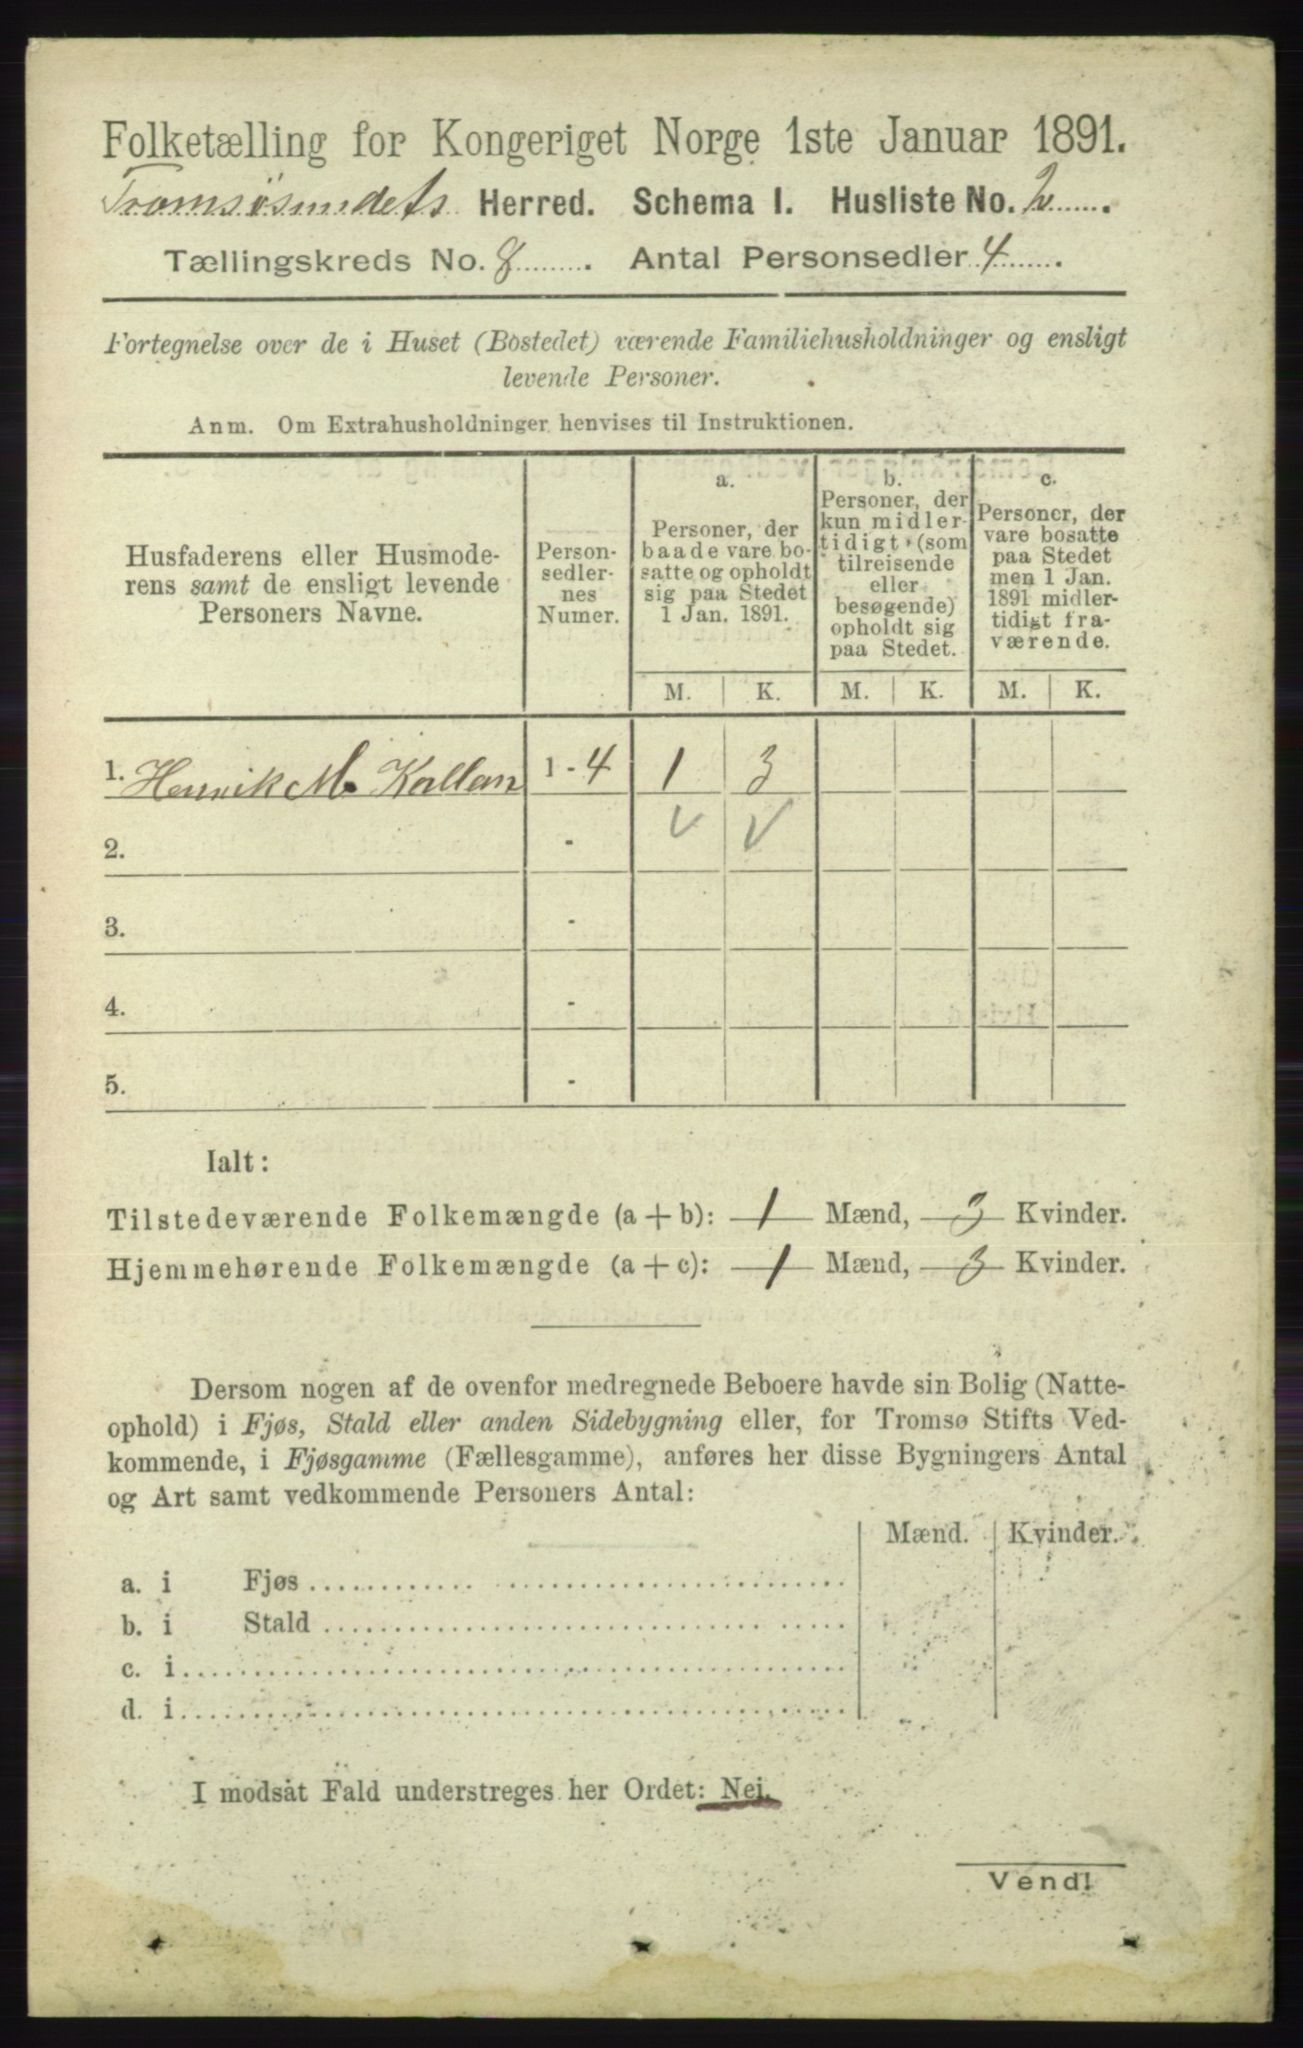 Folketælling for Kongeriget Norge 1ste Januar 1891.
Tromsøsundets Herred. Schema I. Husliste No. 2
Tællingskreds No. 8. Antal Personsedler 4.
Fortegnelse over de i Huset (Bostedet) værende Familiehusholdninger og ensligt
levende Personer.
Anm. Om Extrahusholdninger henvises til Instruktionen.
Husfaderens eller Husmode-
rens samt de ensligt levende
Personers Navne.
Person-
sedler-
nes
Numer.
a.
Personer, der
baade vare bo-
satte og opholdt
sig paa Stedet
1 Jan. 1891.
b.
Personer, der
kun midler-
tidigt (som
tilreisende
eller
besøgende)
opholdt sig
paa Stedet.
c.
Personer, der
vare bosatte
paa Stedet
men 1 Jan.
1891 midler-
tidigt fra-
værende.
M. K. M. K. M. K.
1. Henrik M. Kallan 1 - 4 1 3
2. -
3. -
4. -
5. -
Ialt:
Tilstedeværende Folkemængde (a + b): 1 Mænd, 3 Kvinder.
Hjemmehørende Folkemængde (a + c): 1 Mænd, 3 Kvinder.
Dersom nogen af de ovenfor medregnede Beboere havde sin Bolig (Natte-
ophold) i Fjøs, Stald eller anden Sidebygning eller, for Tromsø Stifts Ved-
kommende, i Fjøsgamme (Fællesgamme), anføres her disse Bygningers Antal
og Art samt vedkommende Personers Antal:
Mænd. Kvinder.
a. i Fjøs
b. i Stald
c. i
d. i
I modsat Fald understreges her Ordet: Nei.
Vend!